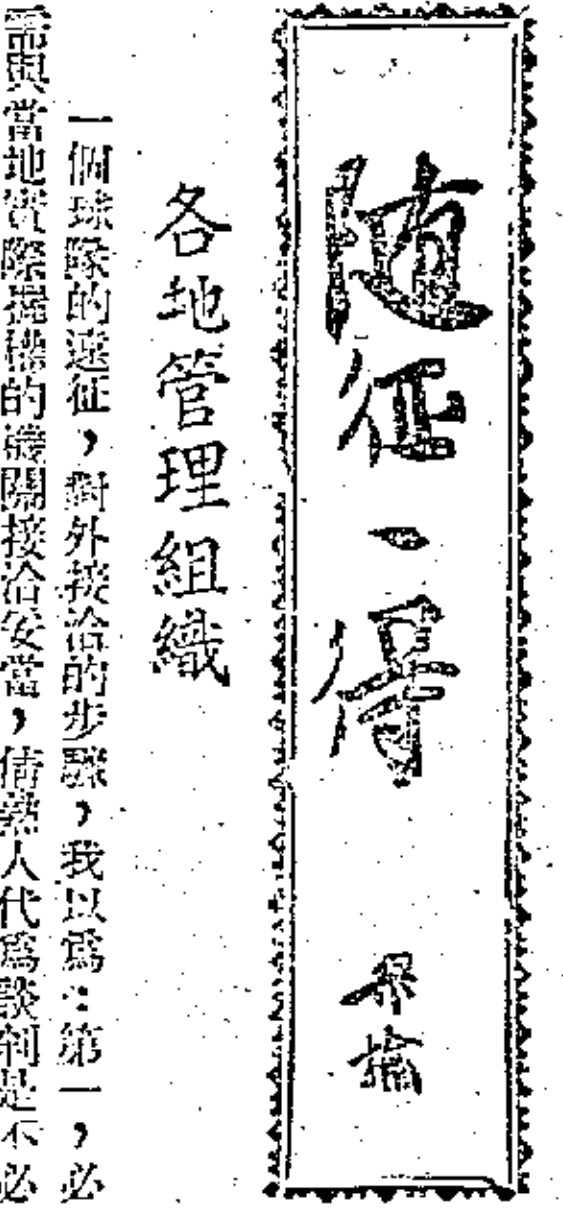 隨征一得
各地管理組織
一個球隊的遠征，對外接洽的步驟，我以爲：第一，必
需與當地實際機構的機關接洽妥當，倩熟人代爲談判是不必